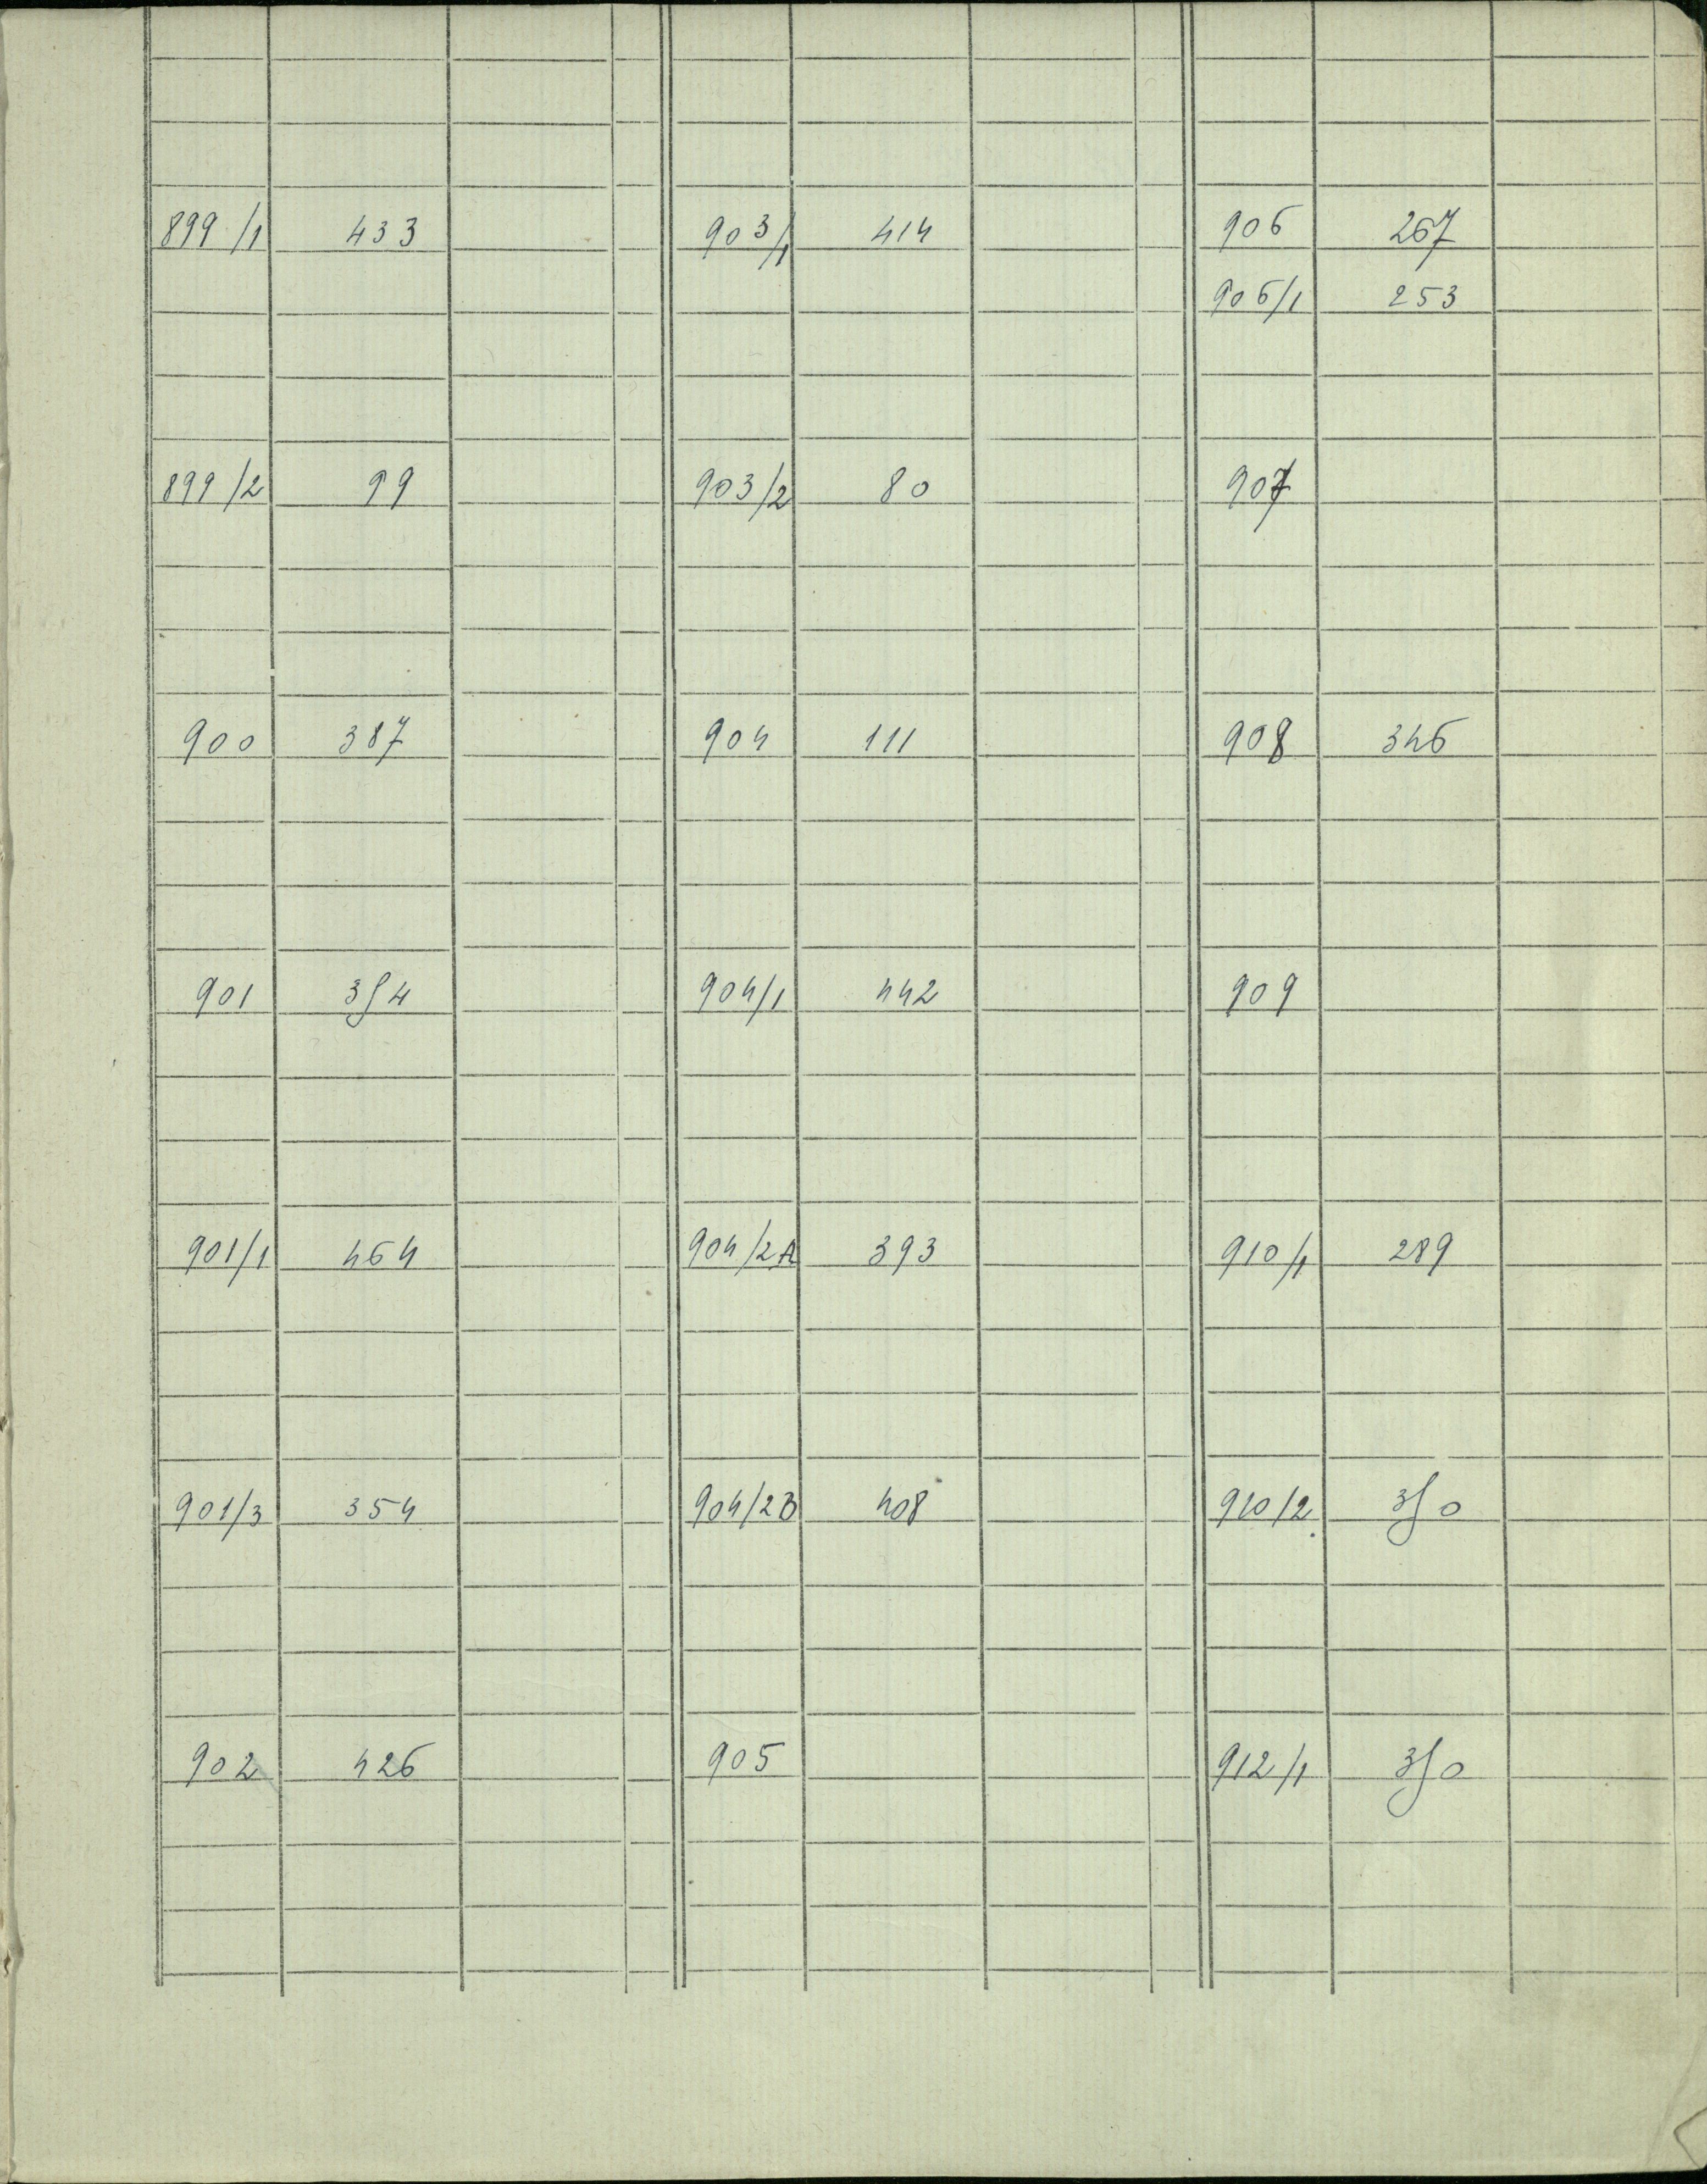 899/1 433
899/2 99
900 387
901
901/1 464
901/3 354
902 426
903/1 414
903/2 80
904 111
904/1 442
904/2A 393
904/2B 408
905
906 267
906/1 253
907
908 346
909
910/1 289
910/2
912/1